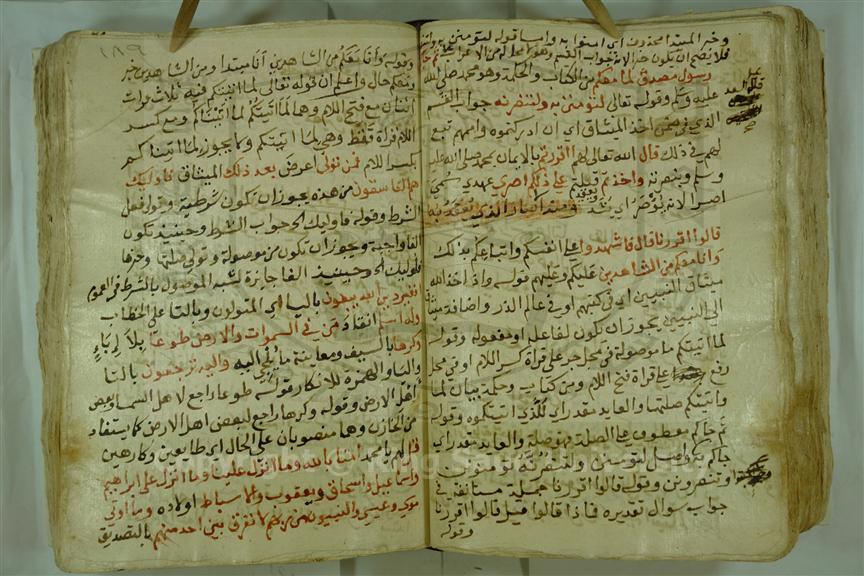 وخبر المبتدا محذوف اي امنوا به واما قوله لتؤمنن به ولتنصرنه
فلا يصح ان يكون خبرا لانه جواب القسم وهو
رسول مصدق لما معكم من الكتاب والحكمة وهو محمد صلى الله
عليه وسلم وقوله تعالى لتؤمنن به ولتنصرنه جواب القسم
الذي في ضمن اخذ الميثاق اي ان ادركتموه واممهم تبع
لهم في ذلك قال الله تعالى لهم ااقررتم بالايمان بمحمد صلى الله عليه
وسلم وبنصرته واخذتم قبلتم على ذلكم اصري عهدي سمي
اصرا لانه يؤصر اي يشد
قالوا اقررنا قال فاشهدوا على انفسكم واتباعكم بذلك
وانا معكم من الشاهدين عليكم وعليهم قوله واذ اخذ الله
ميثاق النبيين اي في كتبهم او في عالم الذر واضافة ميثاق
الى النبيين يجوز ان يكون لفاعله او مفعوله وقوله
لما اتيتكم ما موصولة في محل جر على قراة كسر اللام او في محل
رفع على قراة فتح اللام ومن كتاب وحكمة بيان لما
واتيتكم صلتها والعايد مقدر اي للذي اتيتكموه وقوله
ثم جاكم معطوف على الصلة فهو صلة والعايد مقدر اي
جاكم به واصل لتؤمنن ولتنصرنه لتؤمنونن
وتنصرونن وقوله قالوا اقررنا جملة مستانفة في
جواب سوال تقديره فماذا قالوا فقيل قالوا اقررنا
وقوله
١٨٩
وقوله وانا معكم من الشاهدين انا مبتدا ومن الشاهدين خبر
ومعكم حال واعلم ان قوله تعالى لما اتيتكم فيه ثلاث قرات
اثنتان مع فتح اللام وهما لما اتيتكم لما اتيناكم ومع كسر
اللام قراة فقط وهي لما اتيتكم ولا يجوز لما اتيناكم
بكسر اللام فمن تولى اعرض بعد ذلك الميثاق فاوليك
هم الفاسقون من هذه يجوز ان تكون شرطية وتولى فعل
الشرط وقوله فاوليك الخ جواب الشرط وحينيذ تكون
الفا واجبة ويجوز ان تكون من موصولة وتولى صلتها وخبرها
فاوليك الخ وحينيذ الفا جايزة لشبه الموصول بالشرط في العموم
افغير دين الله يبغون باليا اي المتولون وبالتا على الخطاب
وله اسلم انقاد من في السموات والارض طوعا بلا اباء
وكرها بالسيف ومعاينة ما يلجي اليه واليه ترجعون بالتا
واليا والهمزة للانكار قوله طوعا راجع لاهل السما وبعض
اهل الارض وقوله وكرها راجع لبعض اهل الارض كما يستفاد
من الخازن وهما منصوبان على الحال اي طايعين وكارهين
قل لهم يا محمد امنا بالله وما انزل علينا وما انزل على ابراهيم
واسماعيل واسحاق ويعقوب والاسباط اولاده وما اوتي
موسى وعيسى والنبيون من ربهم لا نفرق بين احد منهم بالتصديق